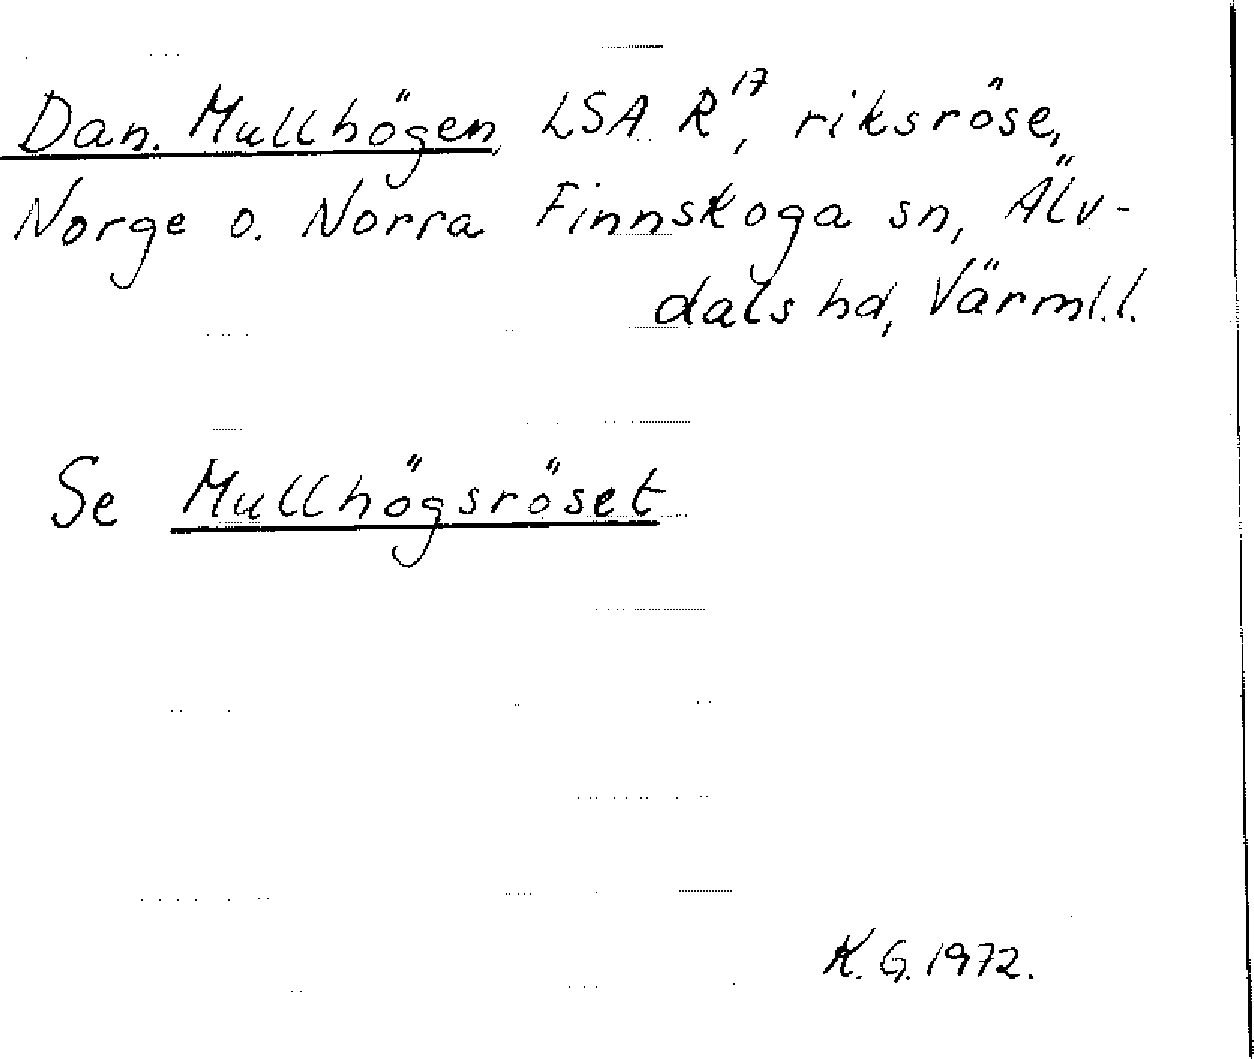 Dan. Mullhögen LSA R¹⁷, riksröse,
Norge o. Norra Finnskoga sn, Älv-
dals hd, Värml.l.
Se Mullhögsröset
K.G. 1972.